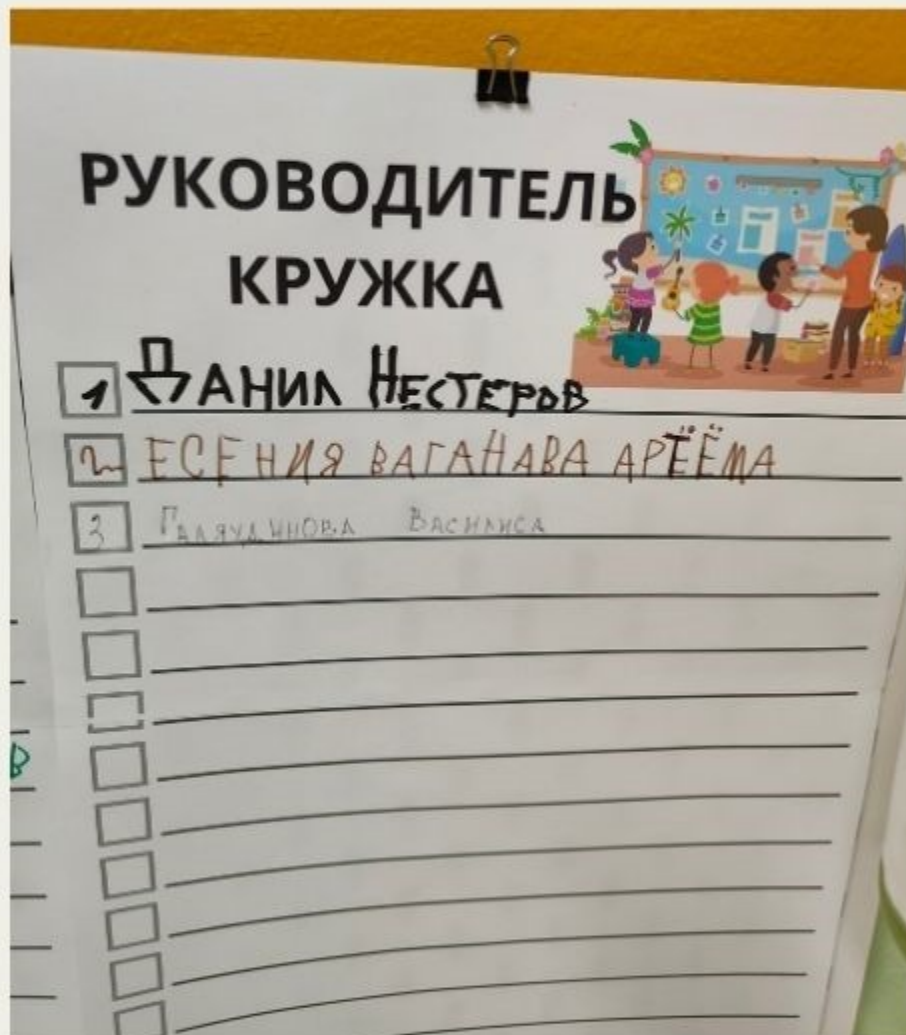 РУКОВОДИТЕЛЬ
КРУЖКА
1 ДАНИЛ НЕСТЕРОВ
2 ЕСЕНИЯ ВАГАНАВА АРТЁЁМА
3 ГАЛЯУДИНОВА ВАСИЛИСА
В